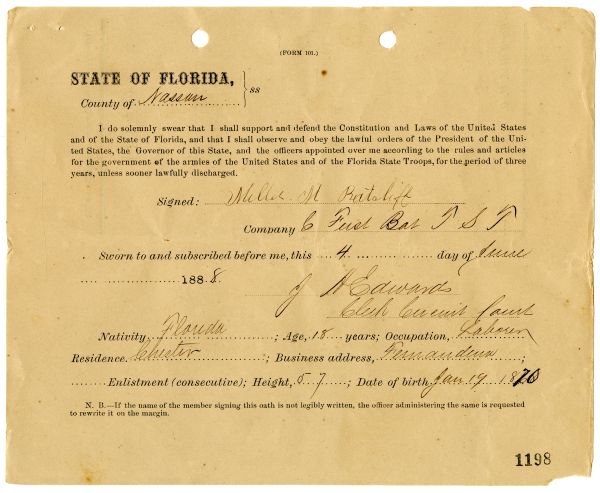 (FORM 101.)
STATE OF FLORIDA,
County of Nassau } ss
I do solemnly swear that I shall support and defend the Constitution and Laws of the United States
and of the State of Florida, and that I shall observe and obey the lawful orders of the President of the Uni-
ted States, the Governor of this State, and the officers appointed over me according to the rules and articles
for the government of the armies of the United States and of the Florida State Troops, for the period of three
years, unless sooner lawfully discharged.
Signed: M. Ratcliff
Company C First Bat F S T
Sworn to and subscribed before me, this 4 day of June
1888.
J H Edwards
Clerk Circuit Court
Nativity, Florida; Age, 18 years; Occupation, Laborer
Residence, Chester; Business address, Fernandina;
Enlistment (consecutive); Height, 5.7; Date of birth, Jan 19 1870
N. B.—If the name of the member signing this oath is not legibly written, the officer administering the same is requested
to rewrite it on the margin.
1198